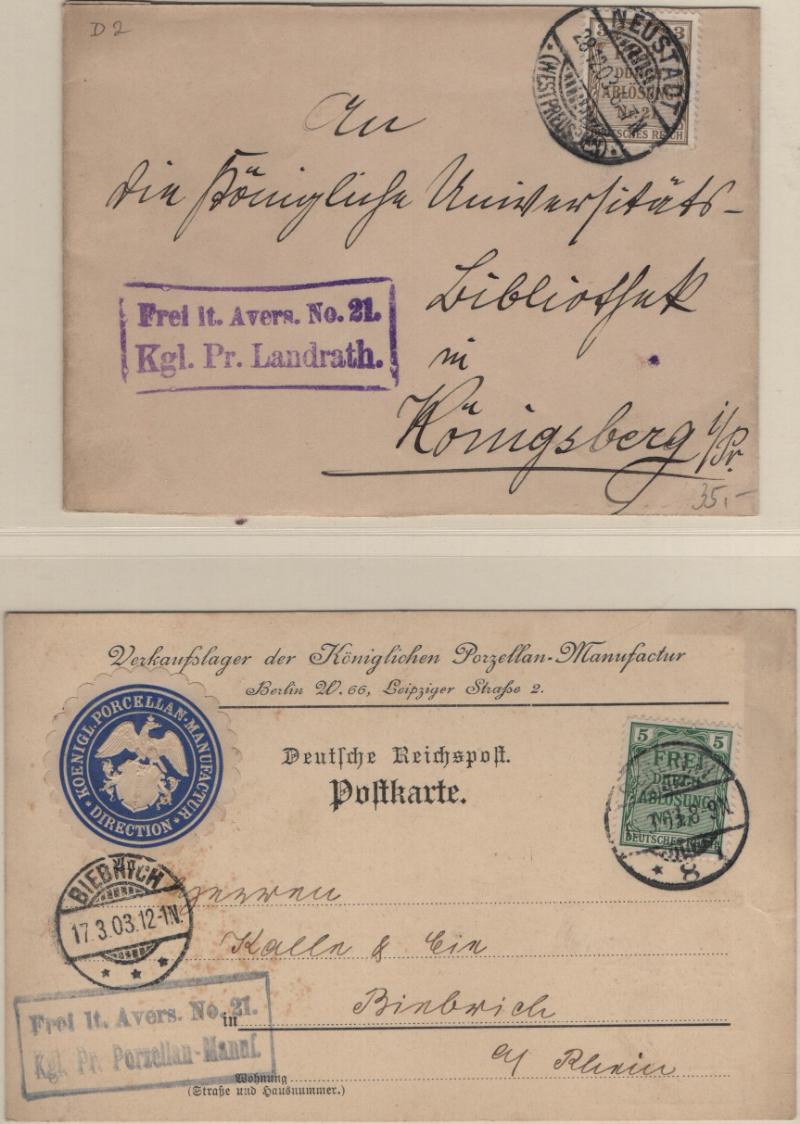 D 2
NEUSTADT
(WESTPREUSSEN)
3 3
DURCH
ABLÖSUNG
Nr. 21
DEUTSCHES REICH
An
die Königliche Universitäts-
Bibliothek
in
Königsberg i/Pr.
Frei lt. Avers. No. 21.
Kgl. Pr. Landrath.
35,-
Verkaufslager der Königlichen Porzellan-Manufactur
Berlin W. 66, Leipziger Straße 2.
KOENIGL. PORCELLAN-MANUFACTUR
DIRECTION
Deutsche Reichspost.
Postkarte.
5 5
FREI
DURCH
ABLÖSUNG
Nr. 21
DEUTSCHES REICH
8
BIEBRICH
17.3.03.12-1N.
An
Herren
Kalle & Cie
in Biebrich
a/ Rhein
Frei lt. Avers. No. 21.
Kgl. Pr. Porzellan-Manuf.
Wohnung
(Straße und Hausnummer.)